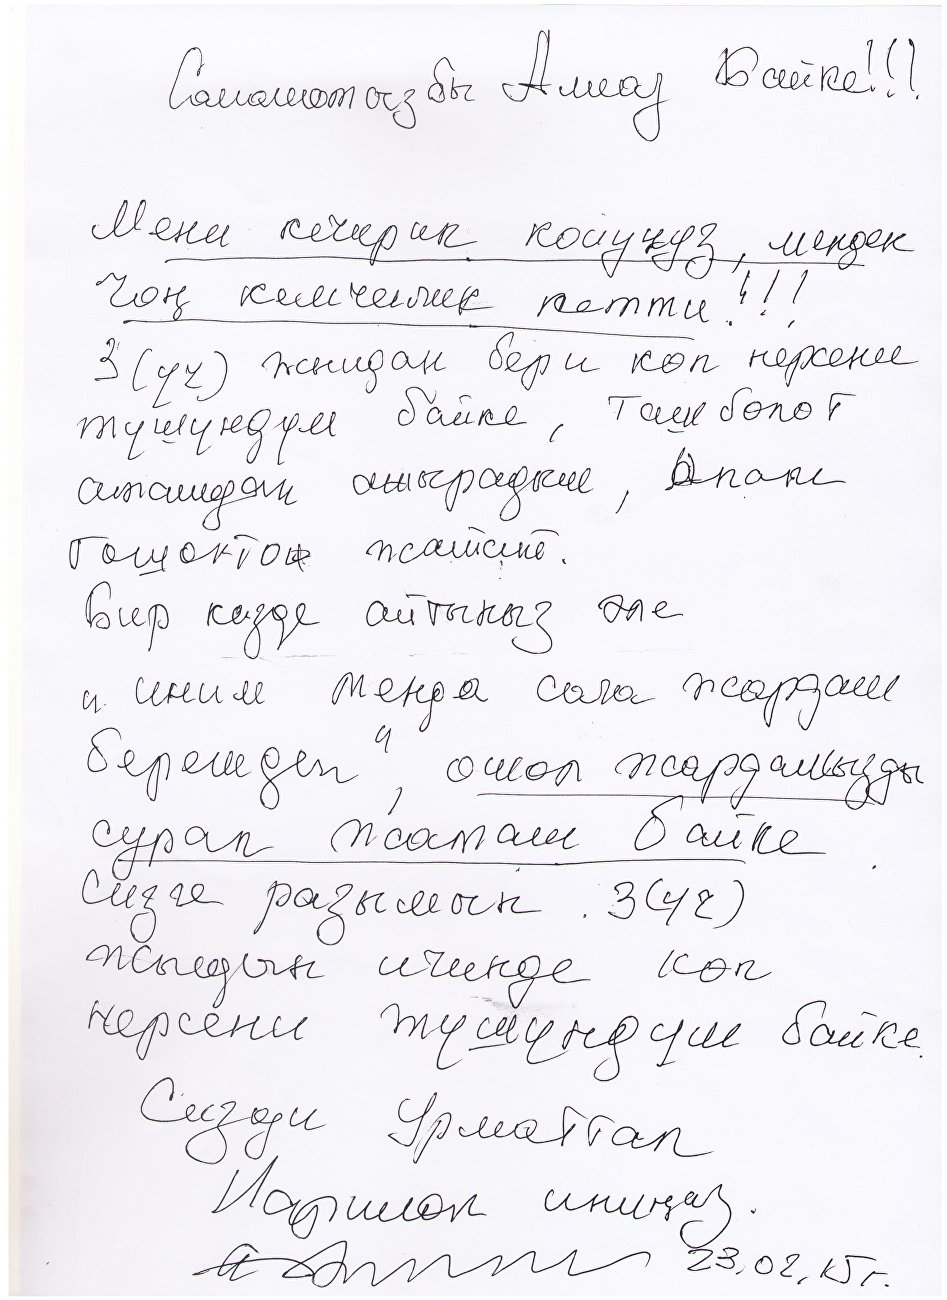 Саламатсызбы Алмаз Байке!!!
Мени кечирип коюңуз, менден
Чоң кемчилик кетти!!!
3(үч) жылдан бери көп нерсени
түшүндүм байке, Ташболот
атамдан ажырадым, Апам
төшөктө жатат.
Бир кезде айтыңыз эле
"иним менде сага жардам
беремден", ошол жардамыңызды
сурап жатам байке
Сизге разымын. 3(үч)
жылдын ичинде көп
нерсени түшүндүм байке.
Сизди Урматтап
Нариман иниңиз.
23,02,15г.